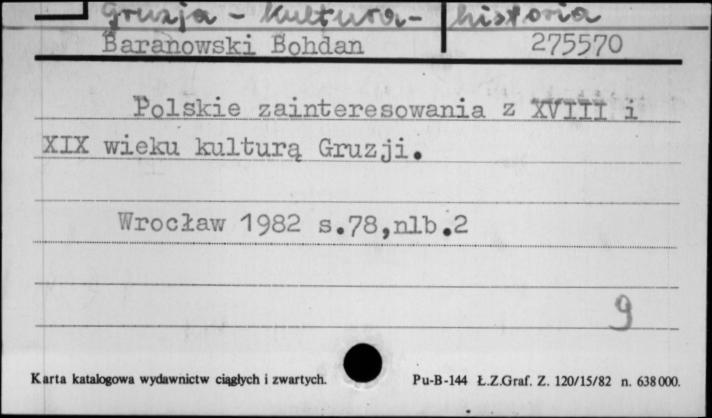 Gruzja - kultura - historia
Baranowski Bohdan 275570
Polskie zainteresowania z XVIII i
XIX wieku kulturą Gruzji.
Wrocław 1982 s.78,nlb.2
9
Karta katalogowa wydawnictw ciągłych i zwartych. Pu-B-144 Ł.Z.Graf. Z. 120/15/82 n. 638000.